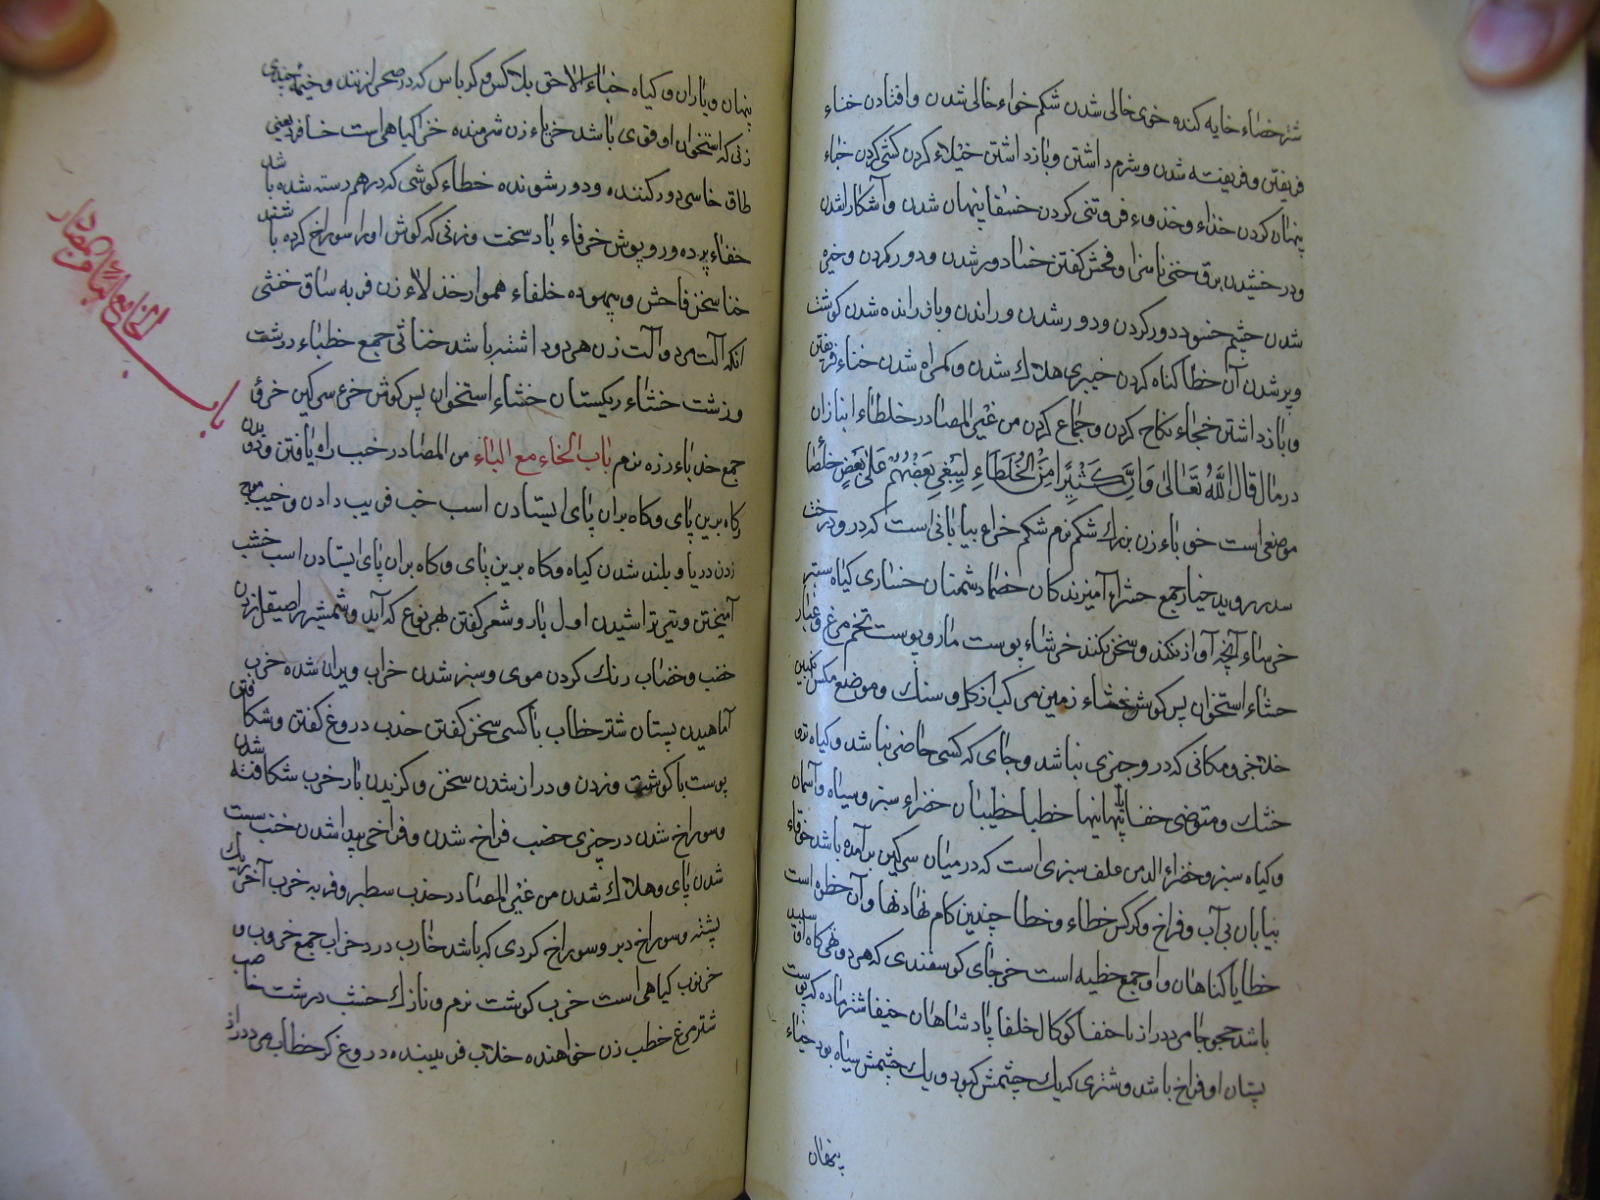 شتر خصاء خایه کنده خوی خالی شدن شکم خواء خالی شدن و افتادن خناء
فریفتن و فریفته شدن و شرم داشتن و باز داشتن خیلاء کردن کشی کردن خباء
پنهان کردن خذاء و خذوء فروتنی کردن خفا پنهان شدن و آشکارا شدن
و درخشیدن برق خنی ناسزا و فحش گفتن خسا دور شدن و دور کردن و خیره
شدن چشم خسود دور کردن و دور شدن و راندن و باز رانده شدن گوشت
و پر شدن آن خطا گناه کردن خیبری هلاک شدن و گمراه شدن خناء فریفتن
و باز داشتن خجاء نکاح کردن و جماع کردن من غیر المصادر خلطاء انبازان
در مال قال الله تعالی وان کثیرا من الخلطاء لیبغی بعضهم علی بعض خلصا
موضعی است خوباء زن بزرک شکم نرم شکم خراع بیابانی است که در و درخت
سدر روید خیار جمع خشراء آمیزندکان خصما دشمنان خنساری کیاه ستبر
خرساء آنچه آواز نکند و سخن نکند خرشاء پوست مار و پوست تخم مرغ و غبار
خشاء استخوان پس گوش خشاء زمین مرکب از گل و سنک و موضع مکس انکبین
خلا جی و مکانی که در و چیزی نباشد و جای که کسی حاضر نباشد و کیاه تر و
خشک و متوضی خفایا پنهانیها خطبا خطیبان خضراء سبز و سیاه و آسمان
و کیاه سبز و خضراء الدمن علف سبزی است که در میان سرکین برآمده باشد خوقاء
بیابان بی آب و فراخ و کرکس خطاء و خطا چندین کام نهادنها و آن خطوه است
خطایا کناهان و او جمع خطیه است خرجای کوسفندی که هر دو تهی کاه او سپید
باشد خجوجا مرد دراز با خنفسا کوکال خلفا پادشاهان خیفا شتر ماده که پوست
پستان او فراخ باشد و شتری که یک چشمش کبود و یک چشمش سیاه بود خیماء
پنهان
پنهان و یاران و کیاه خباء الاحق بلاکس و کرباس که در صحرا زنند و خیمه چندی
زنی که استخوان او قوی باشد خزیاء زن شرمنده خزا کیاهی است خسا فرد یعنی
طاق خاسی دور کننده و دور شونده خطاء کوشی که در هم دسته شده باشد
خفاء پرده و رو پوش خرفاء باد سخت و زنی که گوش او را سوراخ کرده باشند
خنا سخن فاحش و بیهوده خلفاء هموار خذلاء زن فربه ساق خنثی
آنکه آلت مرد و آلت زن هر دو داشته باشد خناثی جمع خطباء درشت
و زشت خنثاء ریکستان خششاء استخوان پس گوش خرء سرکین خروء
جمع خدباء زره نرم باب الخاء مع الباء من المصادر خبب راه یافتن و دویدن
کاه برین پای و کاه بران پای ایستادن اسب خب فریب دادن و خبیب موج
زدن دریا و بلند شدن کیاه و کاه برین پای و کاه بران پای ایستادن اسب خشب
آمیختن و تیر تراشیدن اول بار و شعر گفتن بهر نوع که آید و شمشیر را صیقل زدن
خضب و خضاب رنک کردن موی و سبز شدن خراب ویران شده خزب
آماهیدن پستان شتر خطاب با کسی سخن گفتن خدب دروغ گفتن و شکافتن
پوست با گوشت و زدن و دراز شدن سخن و کزیدن مار خرب شکافته شدن
و سوراخ شدن در چیزی خصب فراخ شدن و فراخی پیدا شدن خنب سست
شدن پای و هلاک شدن من غیر المصادر خدب سطبر و فربه خرب آخر ریک
پشته و سوراخ دبر و سوراخ کردی که باشد خارب دزد خراب جمع خروب و
خرنوب کیاهی است خرب گوشت نرم و نازک خشب درشت خاضب
شتر مرغ خطب زن خواهنده خلاب فریبنده دروغ کر خطاب مرد دراز
باب الخاء مع الباء من المصادر